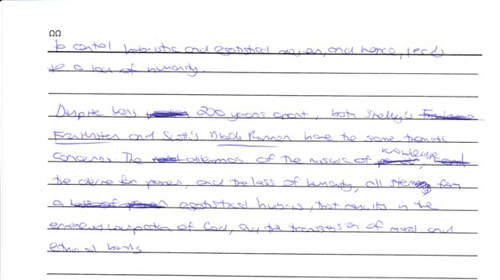 to control hubristic and egotistical
a loss of humanity.
Despite being 200 years apart, both Shelley's
Frankenstein and Scott's Blade Runner have the same thematic
concerns. The dilemmas of the misuse of knowledge
the desire for power, and the loss of humanity, all stem from
a egotistical hubris, that results in the
of God, and the transgression of moral and
ethical bounds